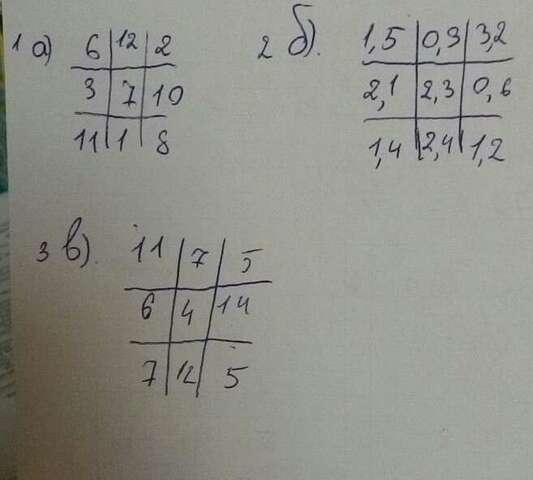 1 а) 6 12 2
3 7 10
11 1 8
2 б). 1,5 0,3 3,2
2,1 2,3 0,6
1,4 2,4 1,2
3 в). 11 7 5
6 4 14
7 12 5